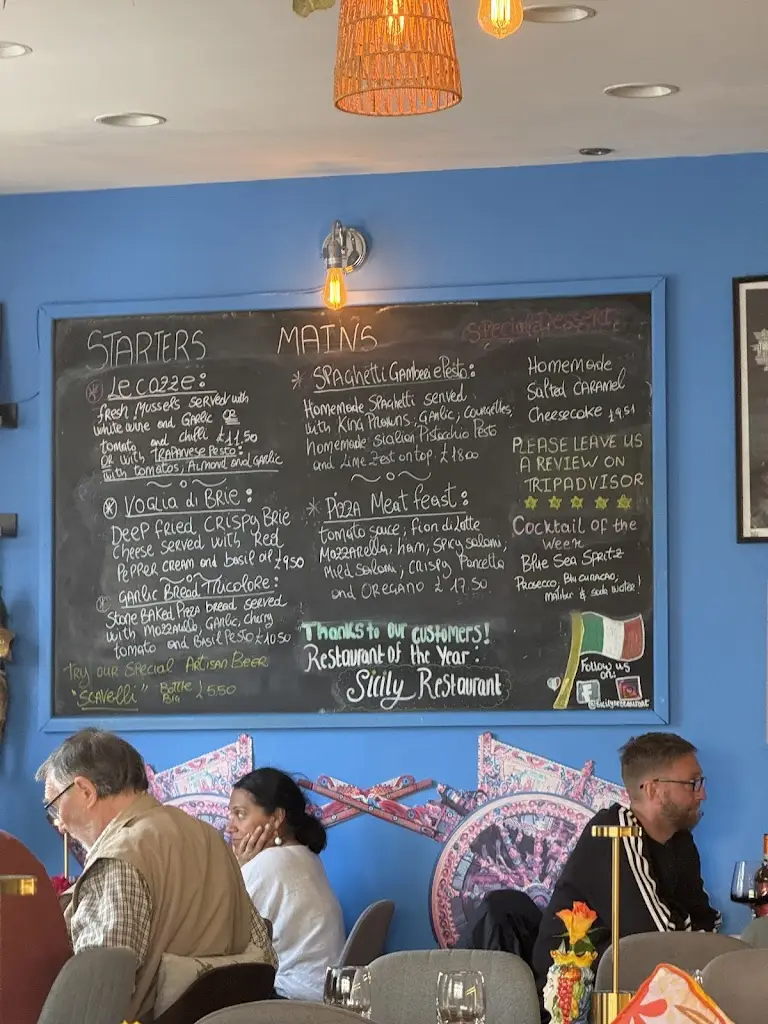 STARTERS
Le cozze:
fresh Mussels served with
white wine and Garlic OR
tomato and chilli £11.50
OR with TRAPANESE PESTO:
with tomatos, Almond and garlic
Voglia di Brie:
Deep fried crispy Brie
cheese served with Red
Pepper cream and basil oil £9.50
Garlic Bread Tricolore:
Stone BAKed Pizza bread served
with Mozzarella, Garlic, cherry
tomato and Basil Pesto £10.50
Try our special Artisan Beer
"SCAVELLI" Bottle
Big £5.50
MAINS
Spaghetti Gamberi e Pesto:
Homemade Spaghetti served
with King Prawns, Garlic, Courgettes,
homemade sicilian Pistachio Pesto
and Lime Zest on top. £18.00
Pizza Meat feast:
tomato sauce, fior di latte
Mozzarella, ham, spicy salami,
Mild salami, crispy Pancetta
and Oregano £17.50
Thanks to our customers!
Restaurant of the Year:
Sicily Restaurant
Special Dessert
Homemade
Salted CARAMEL
Cheesecake £9.51
PLEASE LEAVE US
A REVIEW ON
TRIPADVISOR
Cocktail of the
week
Blue Sea Spritz
Prosecco, Blu curacao,
malibu & soda water!
Follow us
on:
f